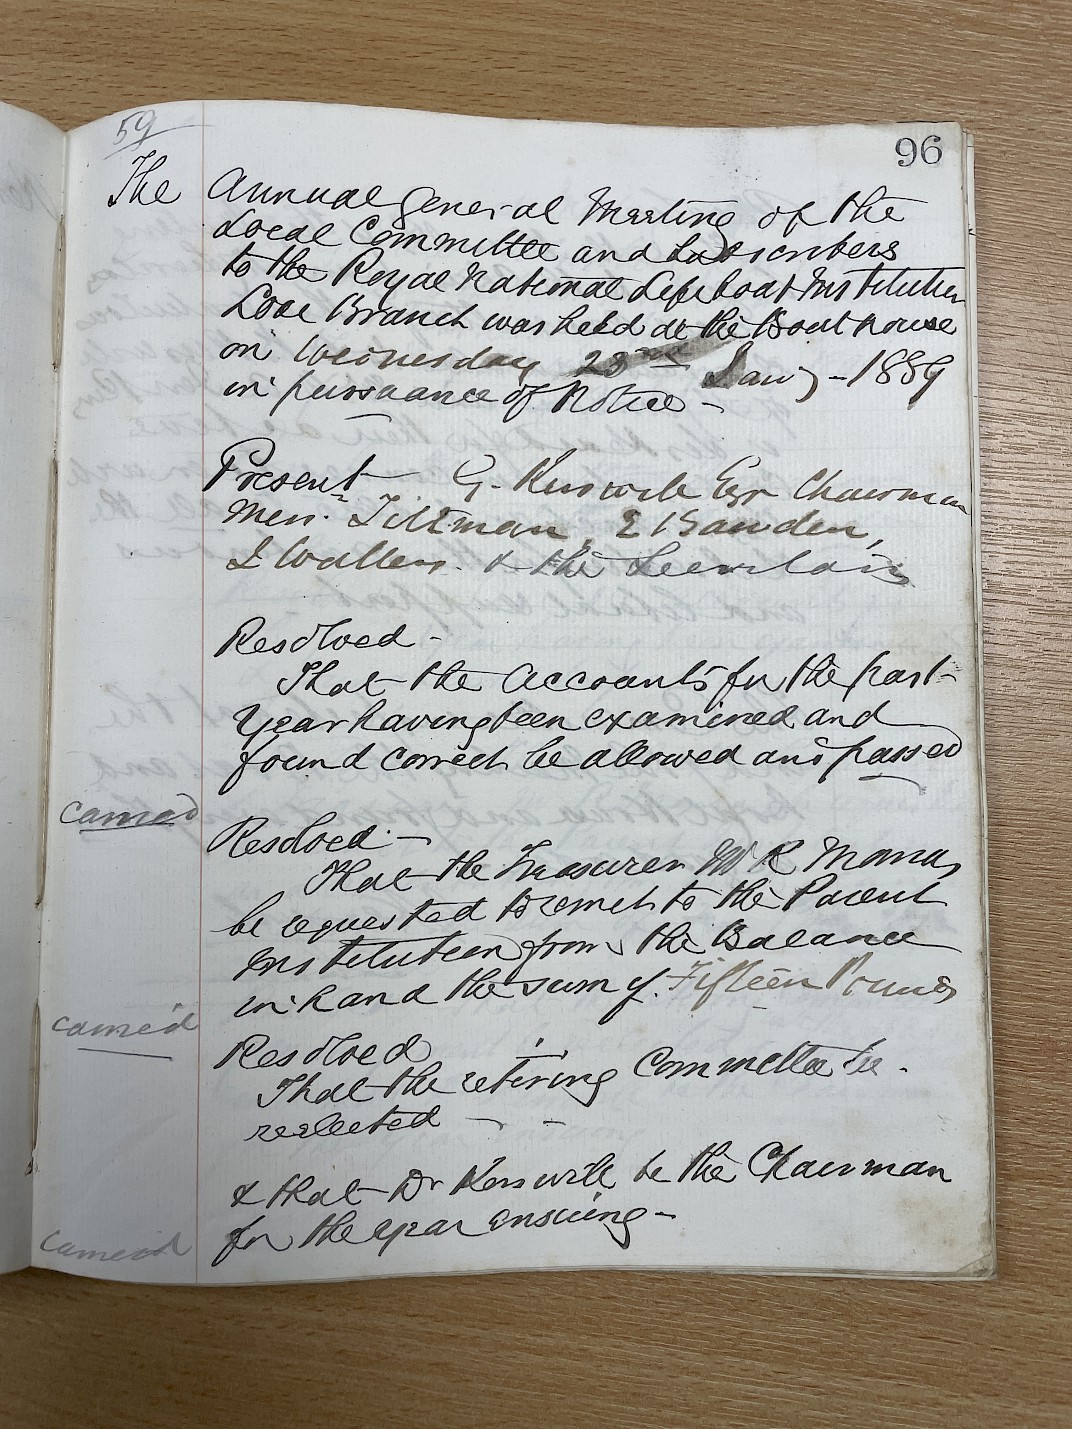 59
96
The Annual General Meeting of the
Local Committee and Subscribers
to the Royal National Lifeboat Institution
Looe Branch was held at the Boat house
on Wednesday 23rd Jany - 1889
in pursuance of Notice -
Present G. Kerswill Esqr Chairman
Mess. Tiltman, E Bawden,
& the Secretary
Resolved -
That the Accounts for the past
Year having been examined and
found correct be allowed and passed
carried
Resolved -
That the Treasurer Mr R
be requested to remit to the Parent
Institution from the Balance
in hand the sum of Fifteen Pounds
carried
Resolved
That the retiring Committee be
reelected -
& that Dr Kerswill be the Chairman
for the year ensuing -
carried